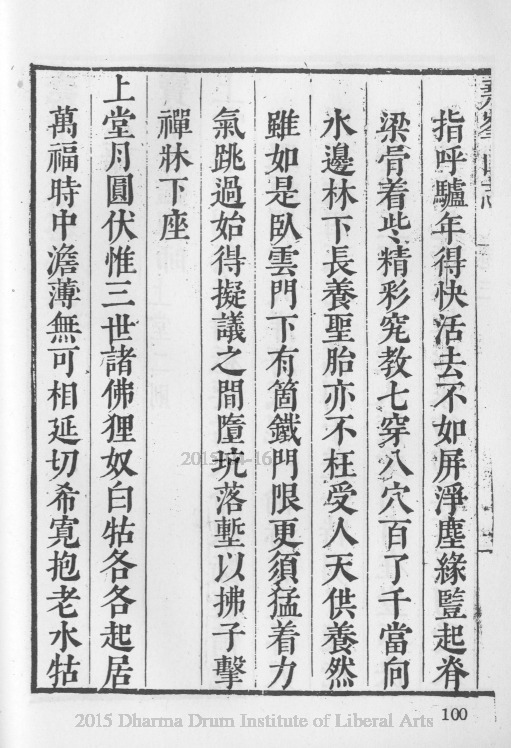 指呼驢年得快活去不如屏淨塵緣豎起脊
梁骨着些精彩究教七穿八穴百了千當向
水邊林下長養聖胎亦不枉受人天供養然
雖如是臥雲門下有箇鐵門限更須猛着力
氣跳過始得擬議之間墮坑落塹以拂子擊
禪牀下座
上堂月圓伏惟三世諸佛狸奴白牯各各起居
萬福時中澹薄無可相延切希寬抱老水牯
100
2015 Dharma Drum Institute of Liberal Arts